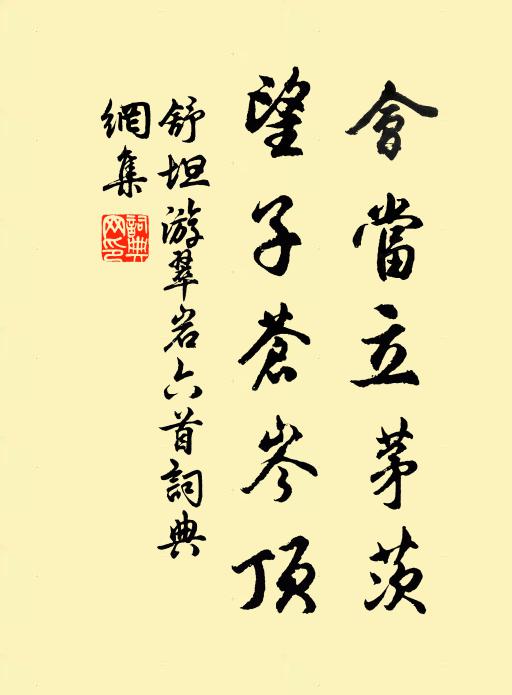 會當立茅茨
望子蒼岑頂
舒坦游翠岩六首詞典
網集
詞典
网印